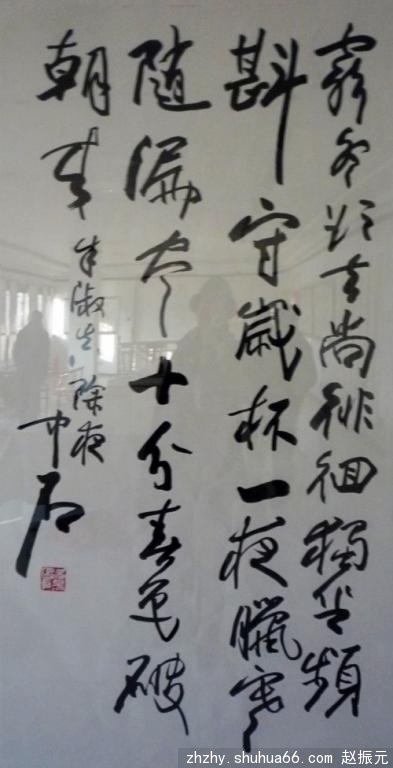 窮冬欲去尚徘徊獨坐頻
斟守歲杯一夜臘寒
随漏尽十分春色破
朝来 朱淑真除夜
中石
zhzhy.shuhua66.com 赵振元